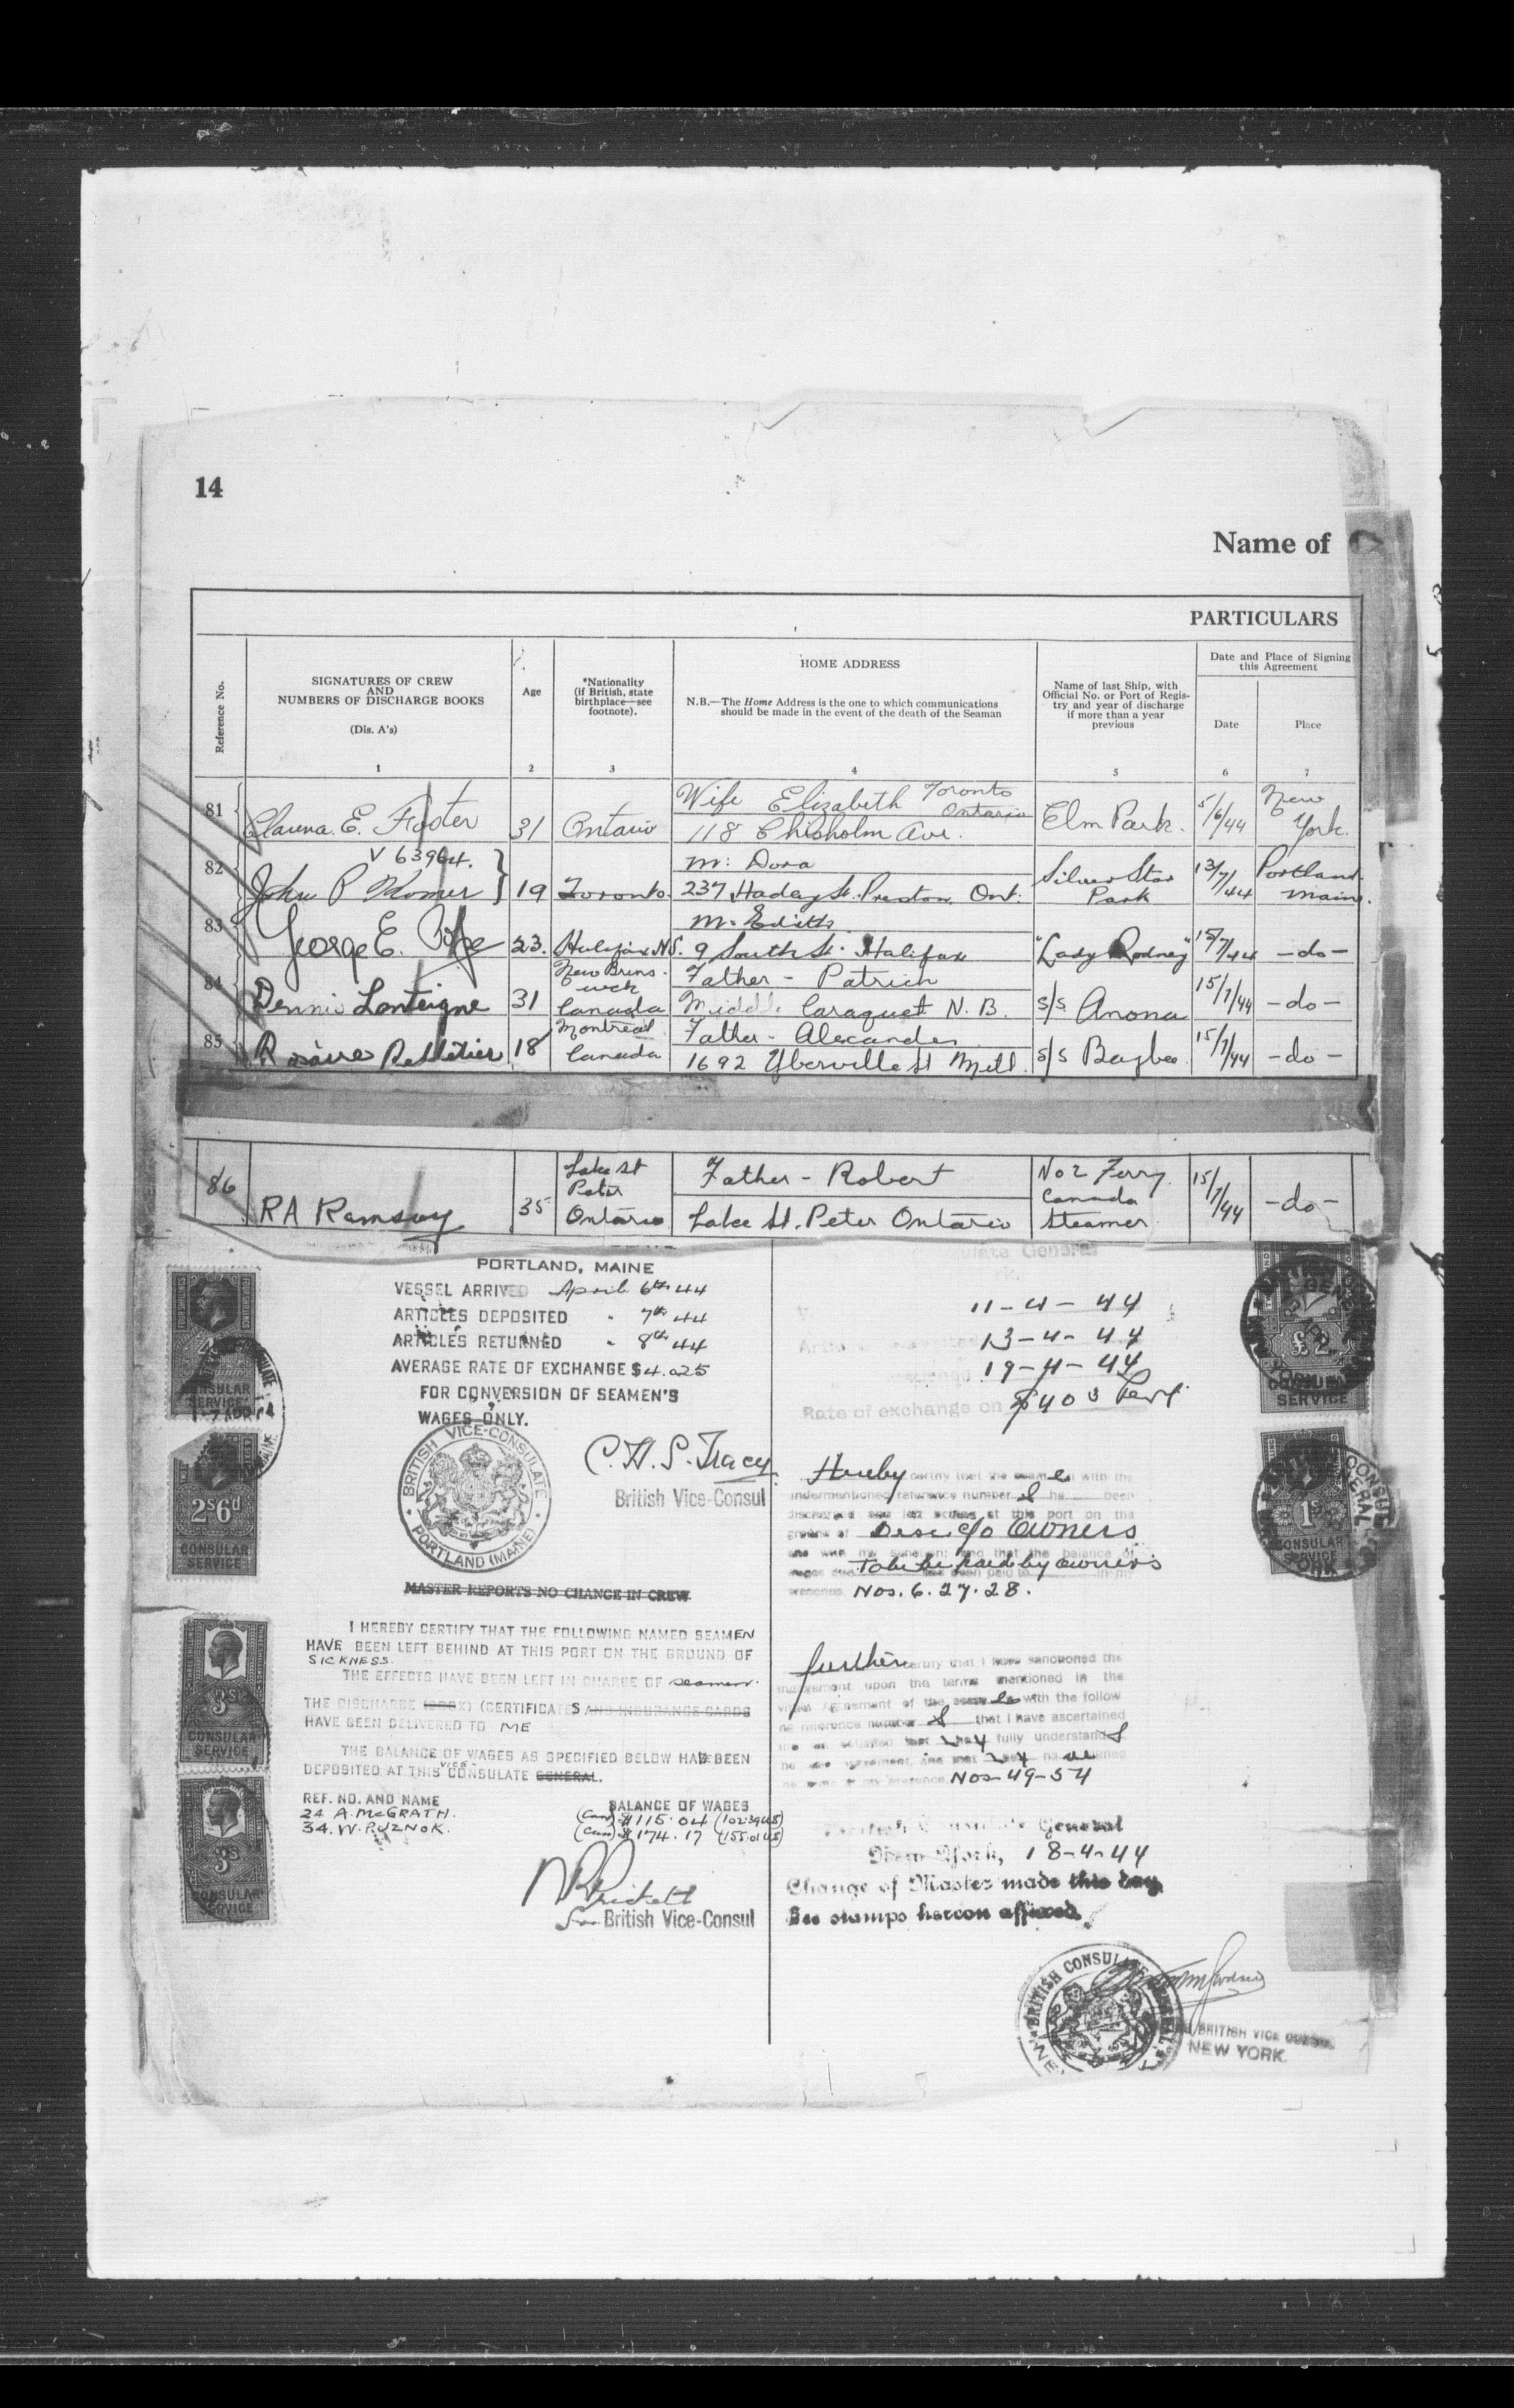 14
Name of
PARTICULARS
Reference No.
SIGNATURES OF CREW
AND
NUMBERS OF DISCHARGE BOOKS
(Dis. A's)
1
Age
2
*Nationality
(if British, state
birthplace—see
footnote).
3
HOME ADDRESS
N.B.—The Home Address is the one to which communications
should be made in the event of the death of the Seaman
4
Name of last Ship, with
Official No. or Port of Regis-
try and year of discharge
if more than a year
previous
5
Date and Place of Signing
this Agreement
Date
6
Place
7
81 E. Foster 31 Ontario
Wife Elizabeth Toronto Ontario
118 Chisholm Ave. Elm Park. 5/6/44 New York.
82 V 63964.
John P 19 Toronto
m: Dora
237 St. Preston. Ont. Silver Star Park 13/7/44 Portland Maine.
83 George E. Pope 23. Halifax N.S.
m. Edith
9 South St. Halifax "Lady Rodney" 15/7/44 -do-
84 Dennis Lanteigne 31 New Bruns-wck Canada
Father - Patrick
Middle Caraquet N.B. s/s Anona 15/7/44 -do-
85 Rosaire Pelletier 18 Montreal Canada
Father - Alexander
1692 Yberville St Mtl. s/s Baybee 15/7/44 -do-
86 RA Ramsay 35 Lake St Peter Ontario
Father - Robert
Lake St. Peter Ontario No 2 Ferry Canada Steamer 15/7/44 -do-
PORTLAND, MAINE
VESSEL ARRIVED April 6th 44
ARTICLES DEPOSITED " 7th 44
ARTICLES RETURNED " 8th 44
AVERAGE RATE OF EXCHANGE $4.025
FOR CONVERSION OF SEAMEN'S
WAGES ONLY.
BRITISH VICE-CONSULATE
PORTLAND (MAINE)
C. H. S. Tracy
British Vice-Consul
MASTER REPORTS NO CHANGE IN CREW
I HEREBY CERTIFY THAT THE FOLLOWING NAMED SEAMEN
HAVE BEEN LEFT BEHIND AT THIS PORT ON THE GROUND OF
SICKNESS.
THE EFFECTS HAVE BEEN LEFT IN CHARGE OF seamen.
THE DISCHARGE (BOOK) (CERTIFICATES AND INSURANCE CARDS
HAVE BEEN DELIVERED TO ME
THE BALANCE OF WAGES AS SPECIFIED BELOW HAVE BEEN
DEPOSITED AT THIS VICE CONSULATE GENERAL.
REF. NO. AND NAME BALANCE OF WAGES
24 A. McGRATH. (Can) $115.04 (102.39 US)
34. W. PUZNOK. (Can) $174.17 (155.01 US)
Prickett
for British Vice-Consul
4
CONSULAR
SERVICE
2s6d
CONSULAR
SERVICE
3s
CONSULAR
SERVICE
3s
CONSULAR
SERVICE
General
11-4-44
13-4-44
19-4-44
Rate of exchange on $403
Hereby certify that the with the
undermentioned reference number s been
at this port on the
Desc. c/o Owners
and with my sanction; and that the balance of
To be paid by owners
Nos. 6. 27. 28.
further certify that I have sanctioned the
engagement upon the terms mentioned in the
Agreement of the with the follow
reference number s that I have ascertained
that they fully understand
Nos 49-54
General
New York, 18-4-44
Change of Master made this day.
See stamps hereon affixed.
BRITISH CONSULATE
BRITISH VICE CONSUL
NEW YORK.
£2
CONSULAR
SERVICE
1s
CONSULAR
SERVICE